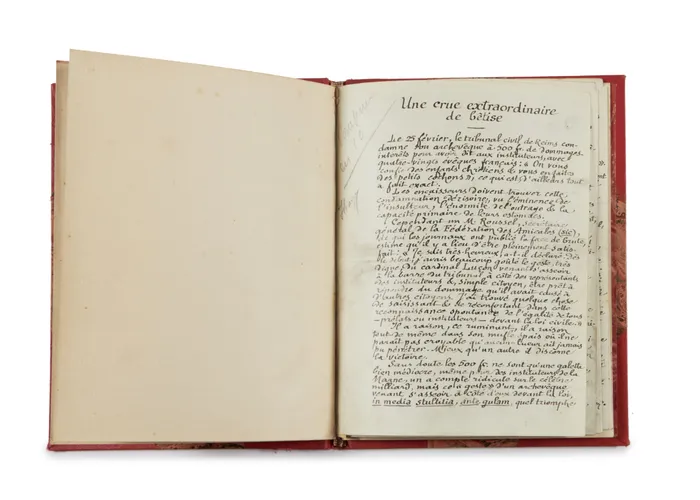 Une crue extraordinaire
de bêtise
Le 25 février, le tribunal civil de Reims con-
damne son archevêque à 500 fr. de dommages-
intérêts pour avoir dit aux instituteurs, avec
quatre-vingts évêques français : « On vous
confie des enfants chrétiens & vous en faites
des petits cochons », ce qui est d'ailleurs tout
à fait exact.
Les encaisseurs doivent trouver cette
condamnation dérisoire, vu l'éminence de
l'insulteur, l'énormité de l'outrage & la
capacité primaire de leurs
Cependant un M. Roussel, secrétaire
général de la Fédération des Amicales (sic),
de qui les journaux ont publié la face de brute,
estime qu'il y a lieu d'être pleinement satis-
fait. « Je suis très-heureux, a-t-il déclaré.
j'avais beaucoup goûté le geste, très
digne du cardinal Luçon venant s'asseoir
à la barre du tribunal à côté des représentants
des instituteurs &, simple citoyen, être prêt à
répondre du dommage qu'il avait causé à
d'autres citoyens. J'ai trouvé quelque chose
de saisissant & de réconfortant dans cette
reconnaissance spontanée de l'égalité de tous
— prélats ou instituteurs — devant la loi civile. »
Il a raison, ce ruminant, il a raison
tout de même dans son mufle épais où il ne
paraît pas croyable qu'aucune lueur ait jamais
pu pénétrer. Mieux qu'un autre il discerne
la victoire.
Sans doute les 500 fr. ne sont qu'une galette
bien médiocre, même pour des instituteurs de la
Marne, un à compte ridicule sur le célèbre
milliard, mais ce « geste » d'un archevêque
venant s'asseoir à côté d'eux devant la loi,
in media stultitia, ante gulam, quel triomphe